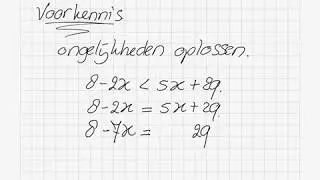 Voorkennis
ongelijkheden oplossen.
8-2x < 5x + 29.
8-2x = 5x + 29.
8-7x = 29